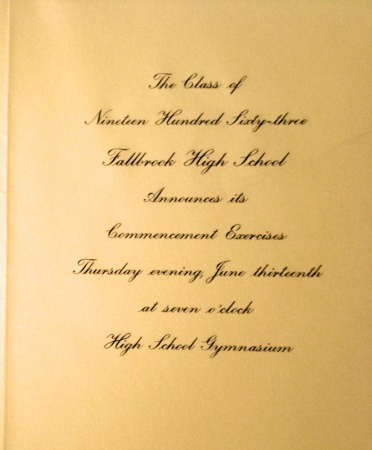 The Class of
Nineteen Hundred Sixty-three
Fallbrook High School
Announces its
Commencement Exercises
Thursday evening, June thirteenth
at seven o'clock
High School Gymnasium